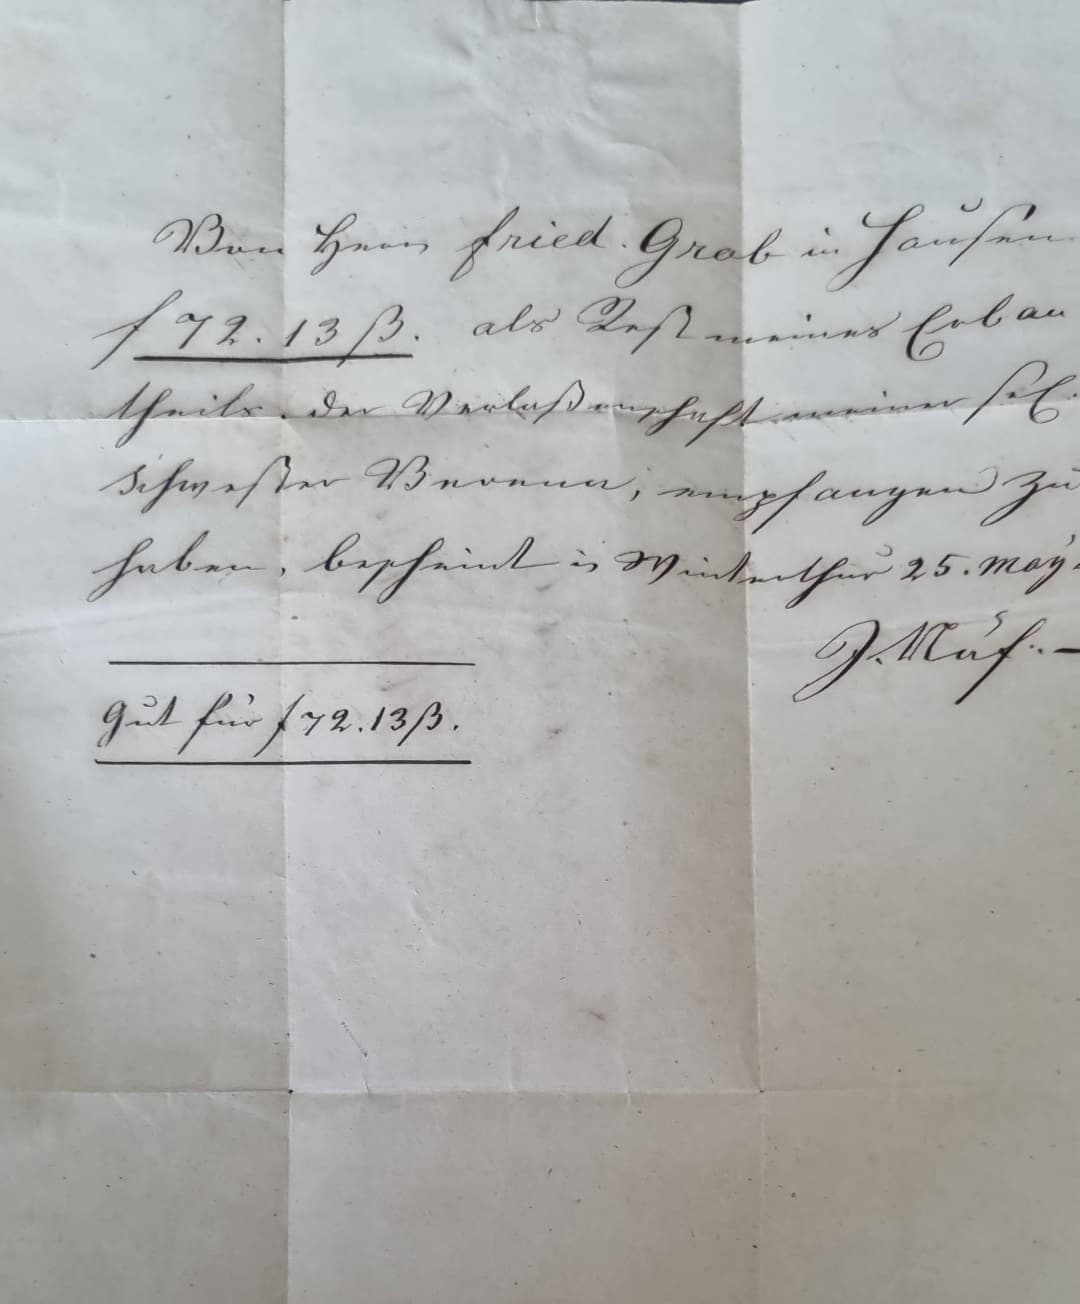 Von Herrn Fried. Grob in Hausen
f 72. 13 ß. als Rest meines Erb an
theils, der Verlaßenschaft meiner sel.
Schwester Verena, empfangen zu
haben, bescheint in Winterthur 25. May
J. Näf.
Gut für f 72. 13 ß.